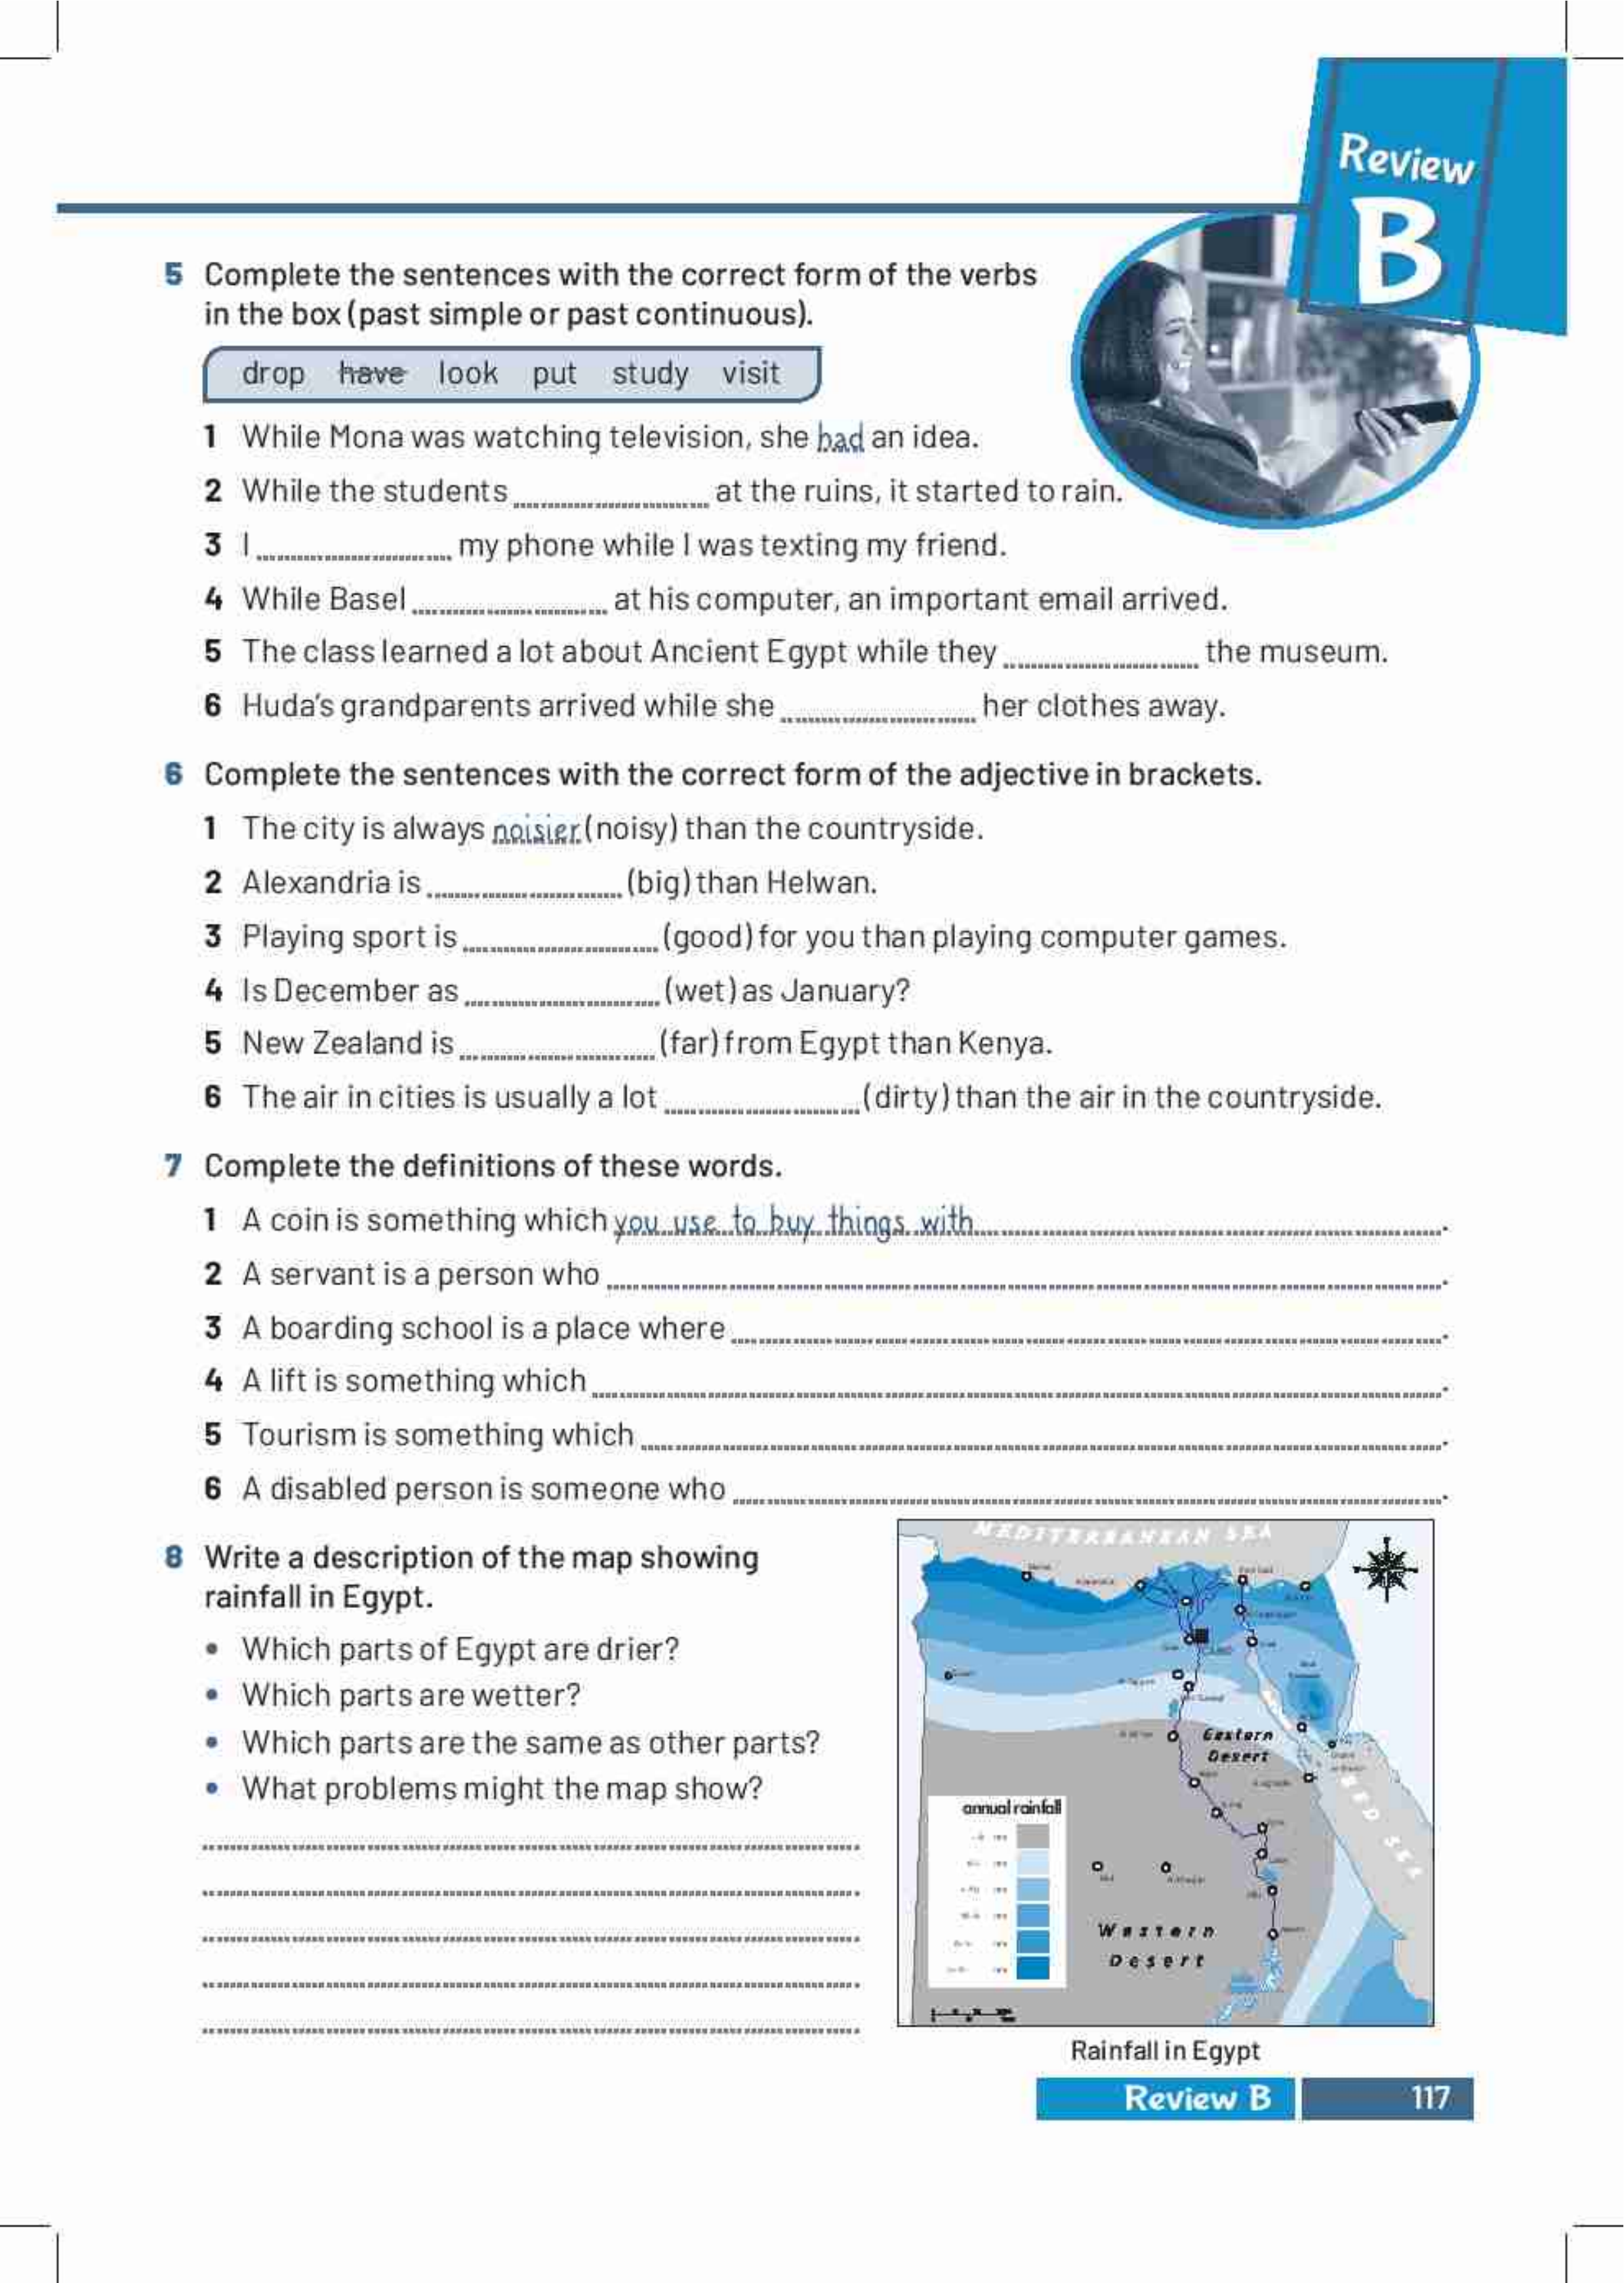 Review
B
5 Complete the sentences with the correct form of the verbs
in the box (past simple or past continuous).
drop have look put study visit
1 While Mona was watching television, she had an idea.
2 While the students at the ruins, it started to rain.
3 I my phone while I was texting my friend.
4 While Basel at his computer, an important email arrived.
5 The class learned a lot about Ancient Egypt while they the museum.
6 Huda's grandparents arrived while she her clothes away.
6 Complete the sentences with the correct form of the adjective in brackets.
1 The city is always noisier (noisy) than the countryside.
2 Alexandria is (big) than Helwan.
3 Playing sport is (good) for you than playing computer games.
4 Is December as (wet) as January?
5 New Zealand is (far) from Egypt than Kenya.
6 The air in cities is usually a lot (dirty) than the air in the countryside.
7 Complete the definitions of these words.
1 A coin is something which you use to buy things with.
2 A servant is a person who .
3 A boarding school is a place where .
4 A lift is something which .
5 Tourism is something which .
6 A disabled person is someone who .
8 Write a description of the map showing
rainfall in Egypt.
• Which parts of Egypt are drier?
• Which parts are wetter?
• Which parts are the same as other parts?
• What problems might the map show?
MEDITERRANEAN SEA
Eastern
Desert
RED SEA
annual rainfall
Western
Desert
Rainfall in Egypt
Review B 117